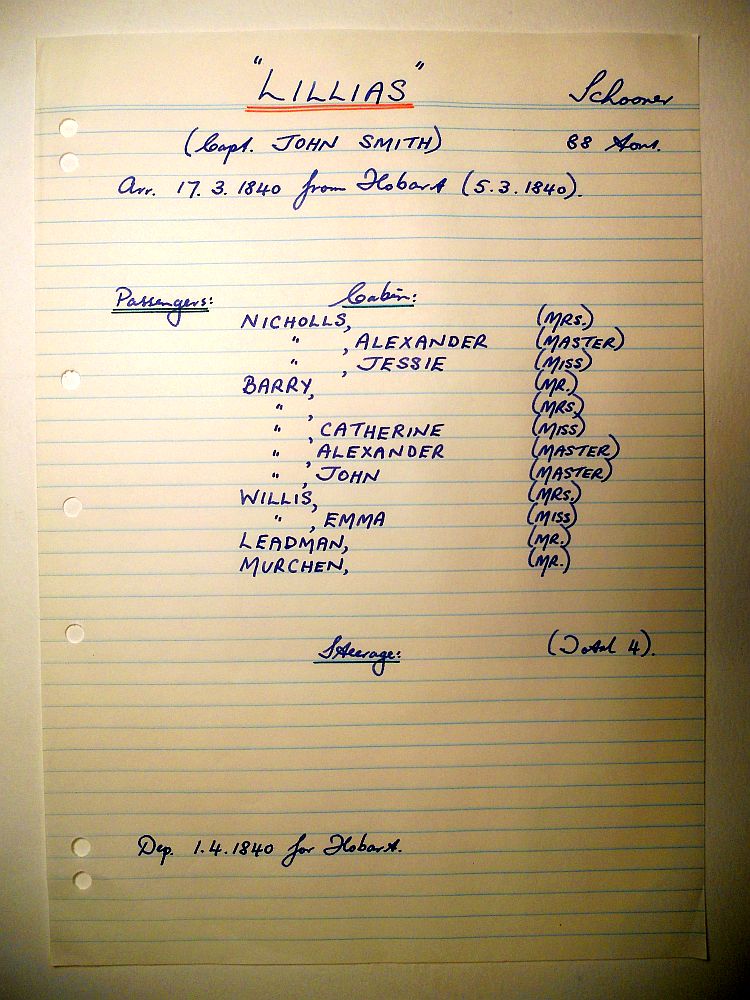 "LILLIAS" Schooner
(Capt. JOHN SMITH) 68 Tons.
Arr. 17.3.1840 from Hobart (5.3.1840).
Passengers: Cabin:
NICHOLLS, (MRS.)
" , ALEXANDER (MASTER)
" , JESSIE (MISS)
BARRY, (MR.)
" , (MRS.)
" , CATHERINE (MISS)
" , ALEXANDER (MASTER)
" , JOHN (MASTER)
WILLIS, (MRS.)
" , EMMA (MISS)
LEADMAN, (MR.)
MURCHEN, (MR.)
Steerage: (Total 4).
Dep. 1.4.1840 for Hobart.